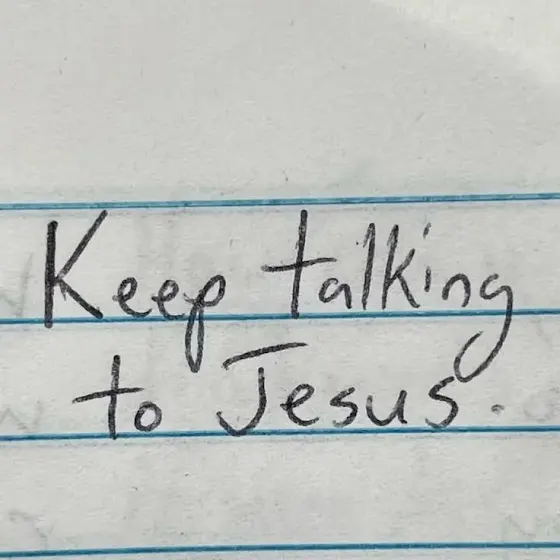 Keep talking
to Jesus.